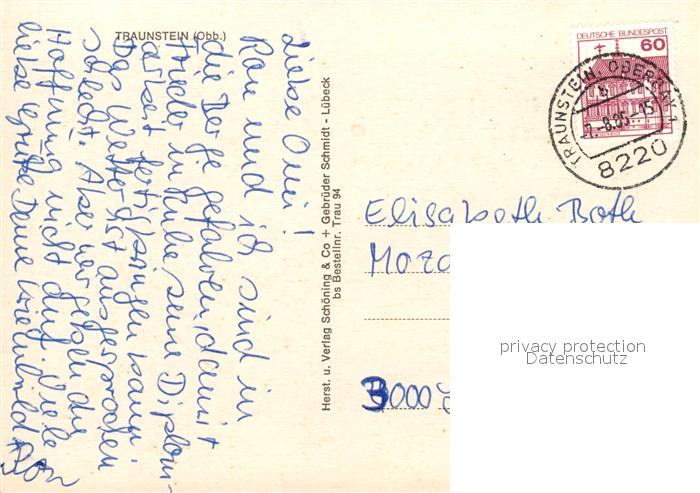 TRAUNSTEIN (Obb.)
Liebe Omi!
Ron und ich sind in
die Berge gefahren, damit
in Ruhe seine Diplom-
arbeit fertig bringen kann.
Das Wetter ist ausgesprochen
schlecht. Aber wir geben die
Hoffnung nicht auf. Viele
liebe Grüße Deine
Herst. u. Verlag Schöning & Co + Gebrüder Schmidt - Lübeck
bs Bestellnr. Trau 94
DEUTSCHE BUNDESPOST
60
TRAUNSTEIN, OBERBAY 1
-8.85-15
8220
Elisabeth Both
Moza
3000
privacy protection
Datenschutz